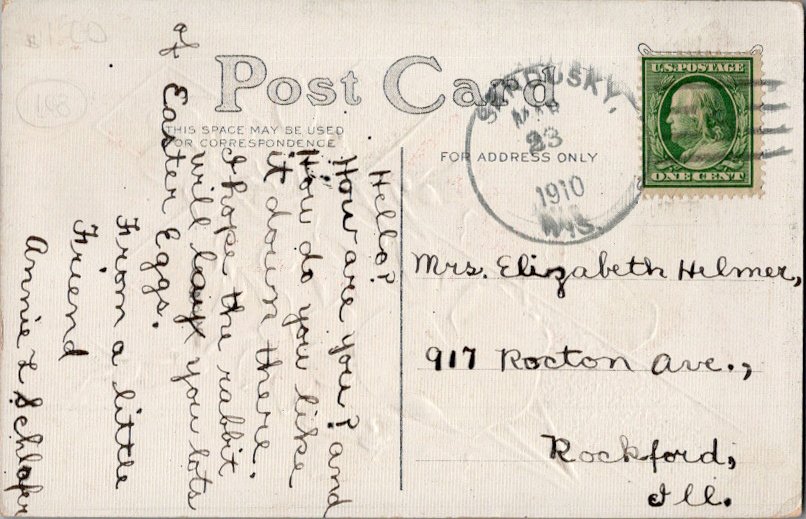 Post Card
THIS SPACE MAY BE USED
FOR CORRESPONDENCE
FOR ADDRESS ONLY
SANDUSKY,
MAR
23
1910
WIS.
U.S. POSTAGE
ONE CENT
Hello?
How are you? and
How do you like
it down there.
I hope the rabbit
will lay you lots
of Easter Eggs.
From a little
Friend
Annie L Schlafer
Mrs. Elizabeth Helmer,
917 Rocton Ave.,
Rockford,
Ill.